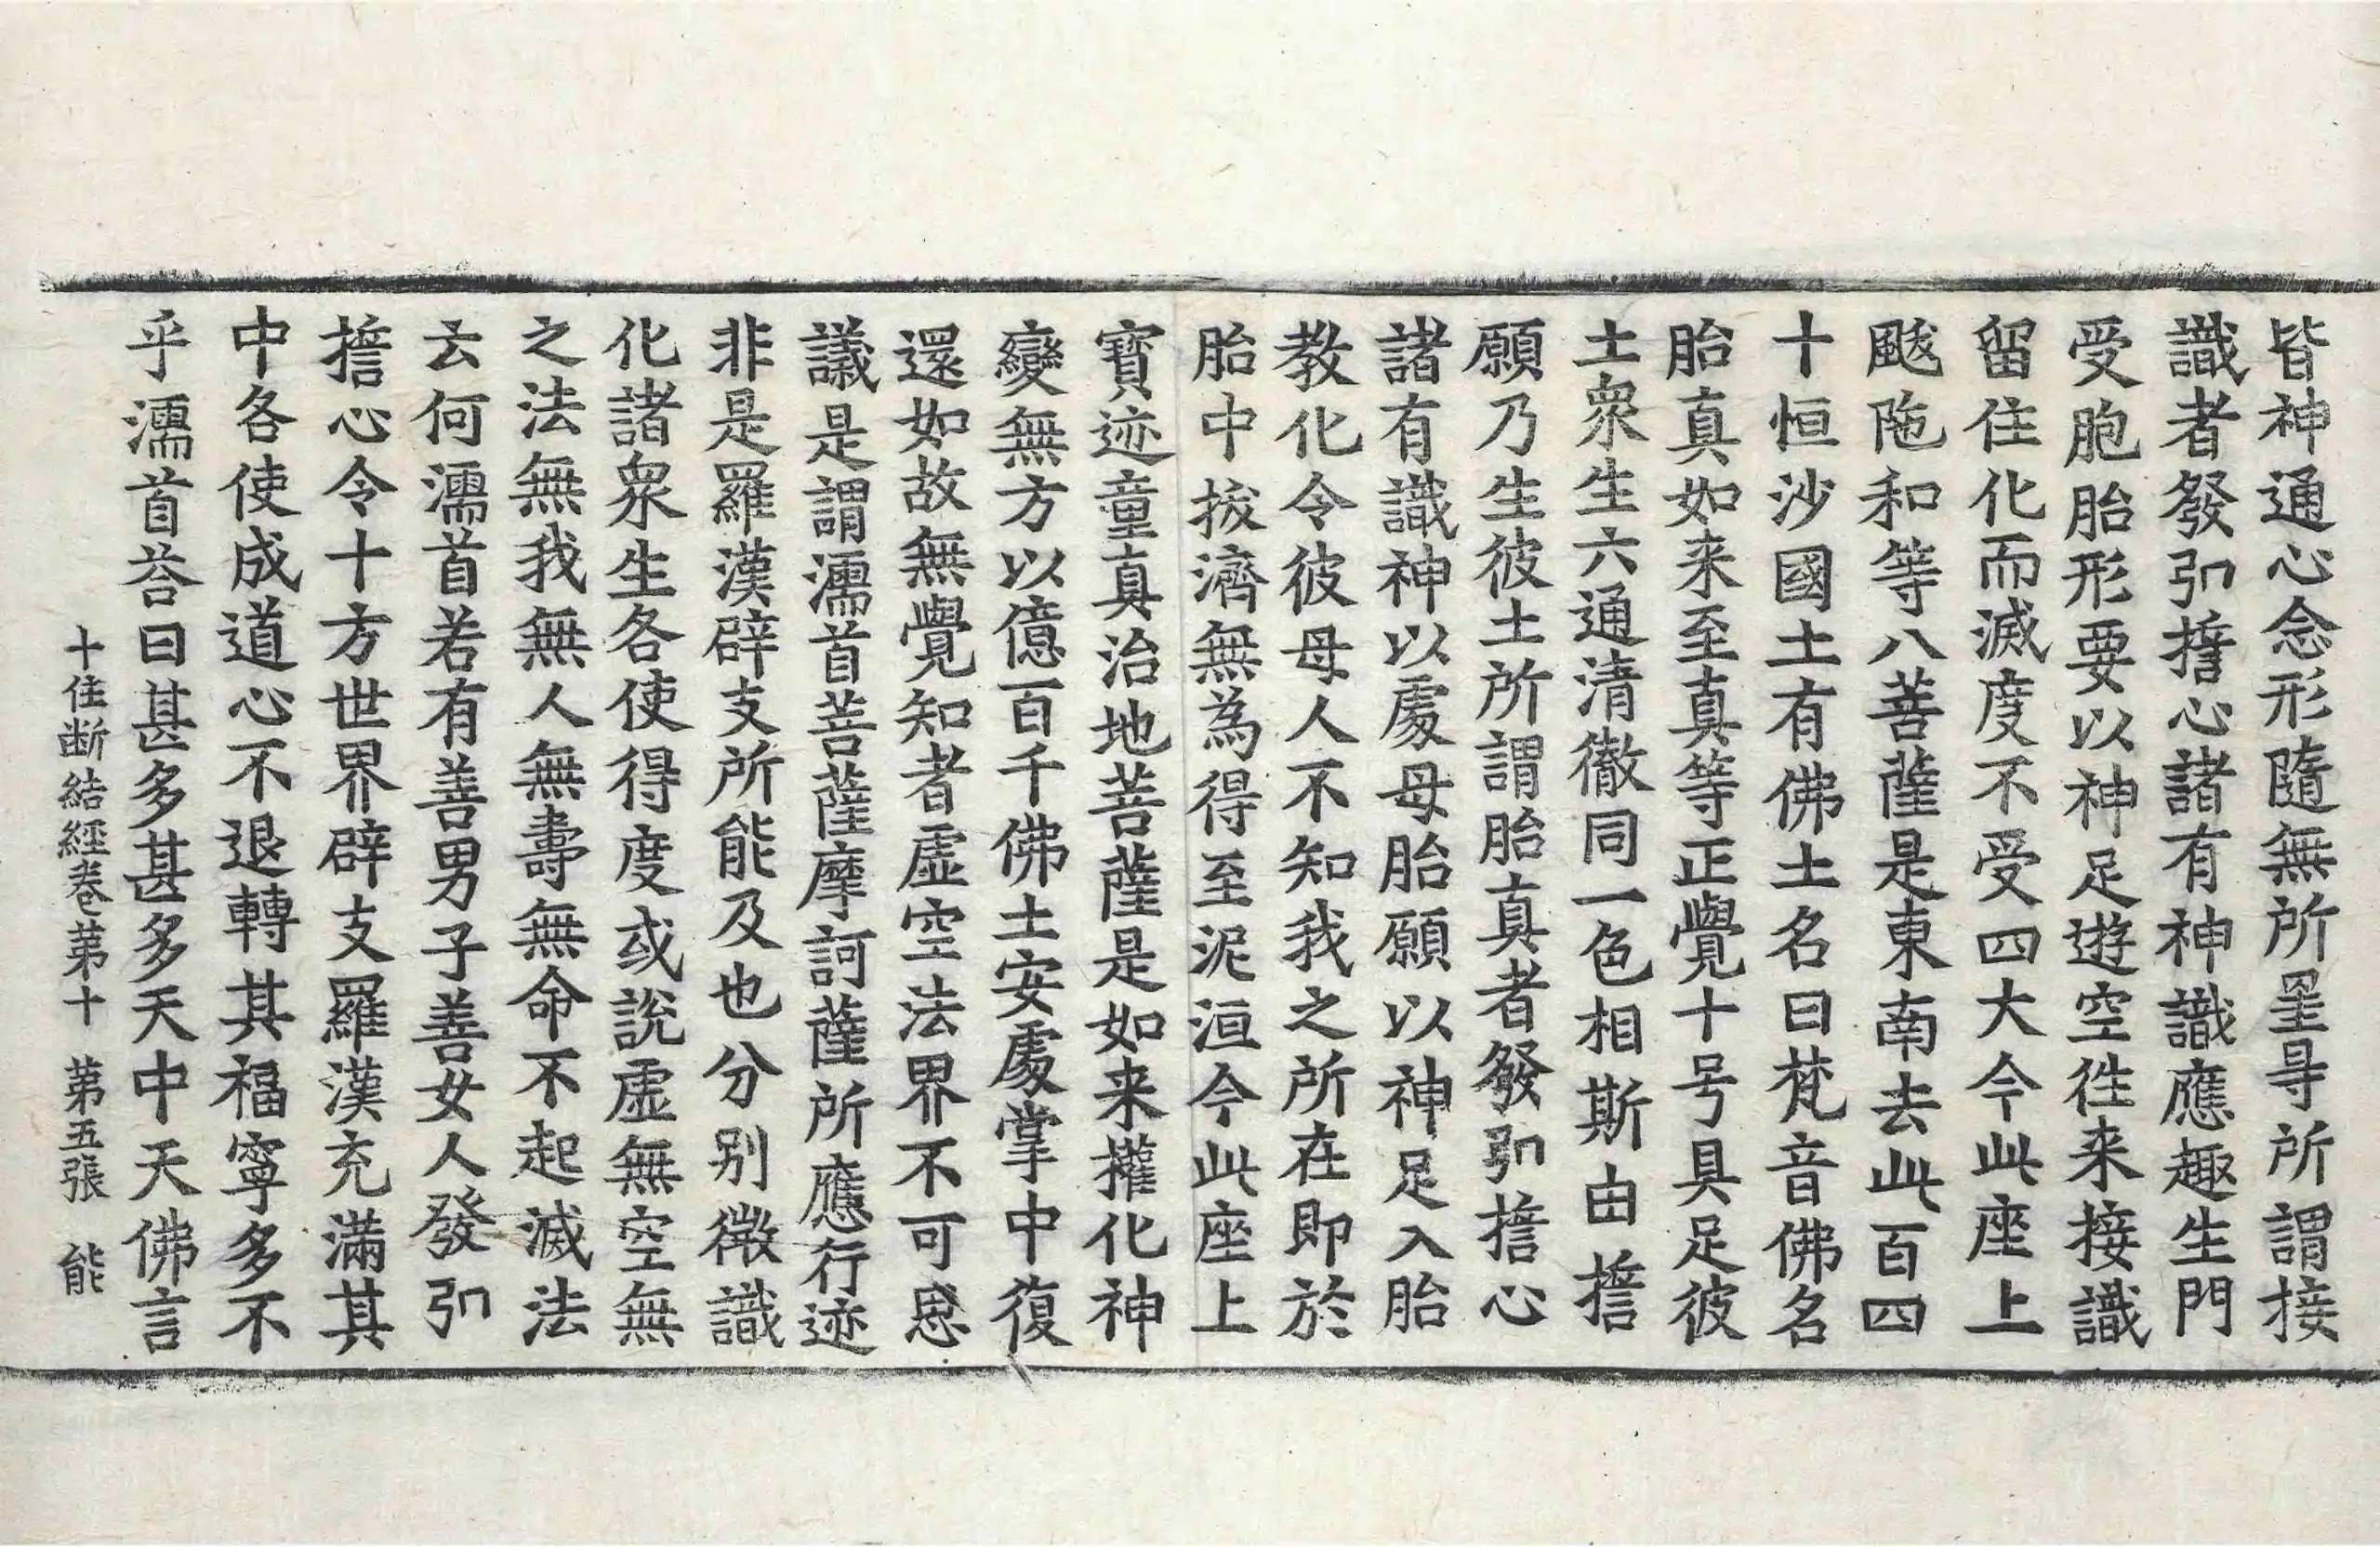 皆神通心念形隨無所罣㝵所謂接
識者發弘擔心諸有神識應趣生門
受胞胎形要以神足遊空徃来接識
留住化而滅度不受四大今此座上
颰陁和等八菩薩是東南去此百四
十恒沙國土有佛土名曰梵音佛名
胎真如来至真等正覺十号具足彼
土衆生六通清徹同一色相斯由擔
願乃生彼土所謂胎真者發弘擔心
諸有識神以處母胎願以神足入胎
教化令彼母人不知我之所在即於
胎中拔濟無為得至泥洹今此座上
寶迹童真治地菩薩是如来權化神
變無方以億百千佛土安處掌中復
還如故無覺知者虛空法界不可思
議是謂濡首菩薩摩訶薩所應行迹
非是羅漢辟支所能及也分別微識
化諸衆生各使得度或說虛無空無
之法無我無人無壽無命不起滅法
云何濡首若有善男子善女人發弘
擔心令十方世界辟支羅漢充滿其
中各使成道心不退轉其福寧多不
乎濡首荅曰甚多甚多天中天佛言
十住断結經卷第十　第五張　能